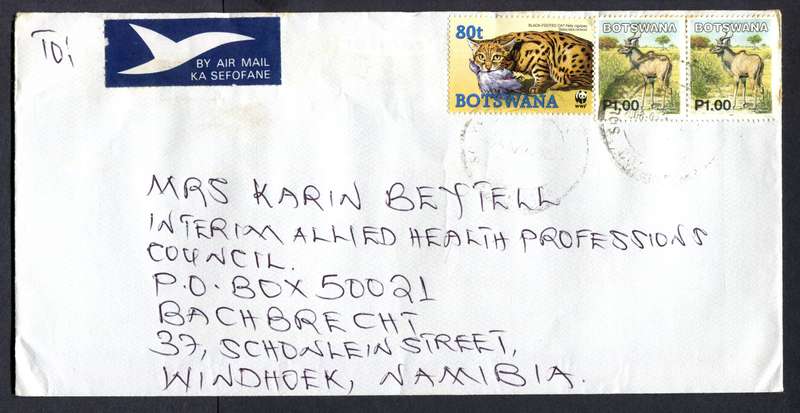 TO:
BY AIR MAIL
KA SEFOFANE
80t
BLACK-FOOTED CAT Felis nigripes
BOTSWANA
WWF
BOTSWANA
P1.00
BOTSWANA
P1.00
MRS KARIN BEYTELL
INTERIM ALLIED HEALTH PROFESSIONS
COUNCIL.
P.O. BOX 50021
BACHBRECHT
37, SCHONLEIN STREET,
WINDHOEK, NAMIBIA.